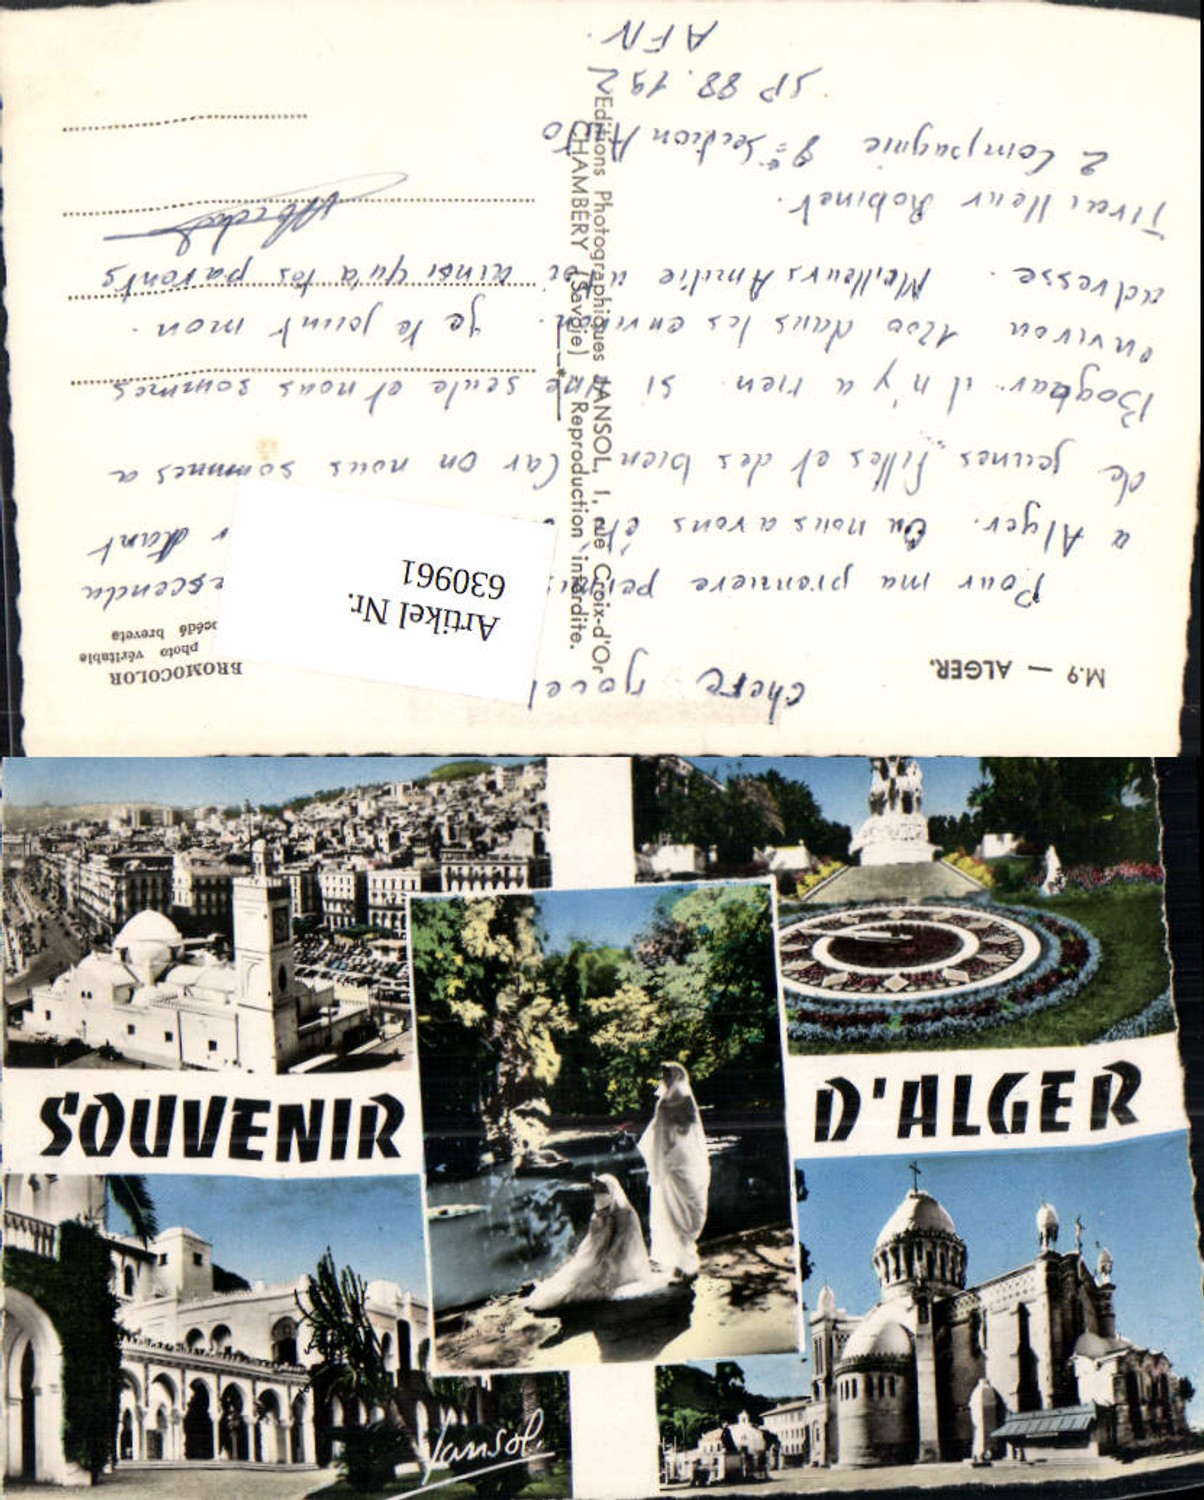 M.9 — ALGER.
BROMOCOLOR
photo véritable
breveté
Artikel Nr.
630961
Editions Photographiques JANSOL, 1, rue Croix-d'Or
CHAMBÉRY (Savoie) — Reproduction interdite.
chere
Pour ma premiere
a Alger. On nous avons été
de jeunes filles et des bien Car on nous sommes a
Boghar. il n'y a rien. si une seule et nous sommes
environ 1200 dans les environ. Je te joint mon.
adresse. Meilleurs Amitie a toi ainsi qu'a tes parents
Tirailleur Robinet.
2 Compagnie 9e Section
SP 88.192
AFN.
SOUVENIR D'ALGER
Jansol.